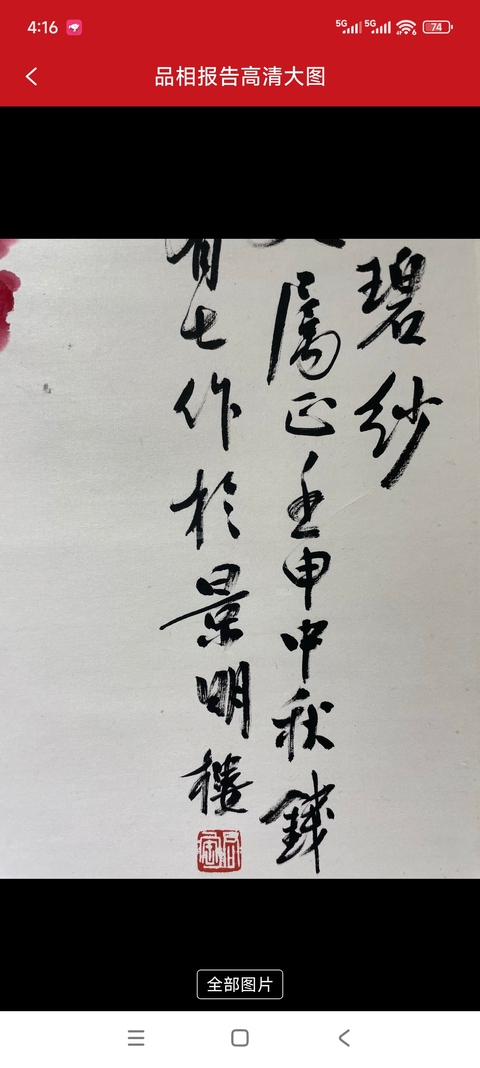 4:16
5G 5G 6 74
品相报告高清大图
碧纱
属正壬申中秋钱
有七作於景明楼
全部图片